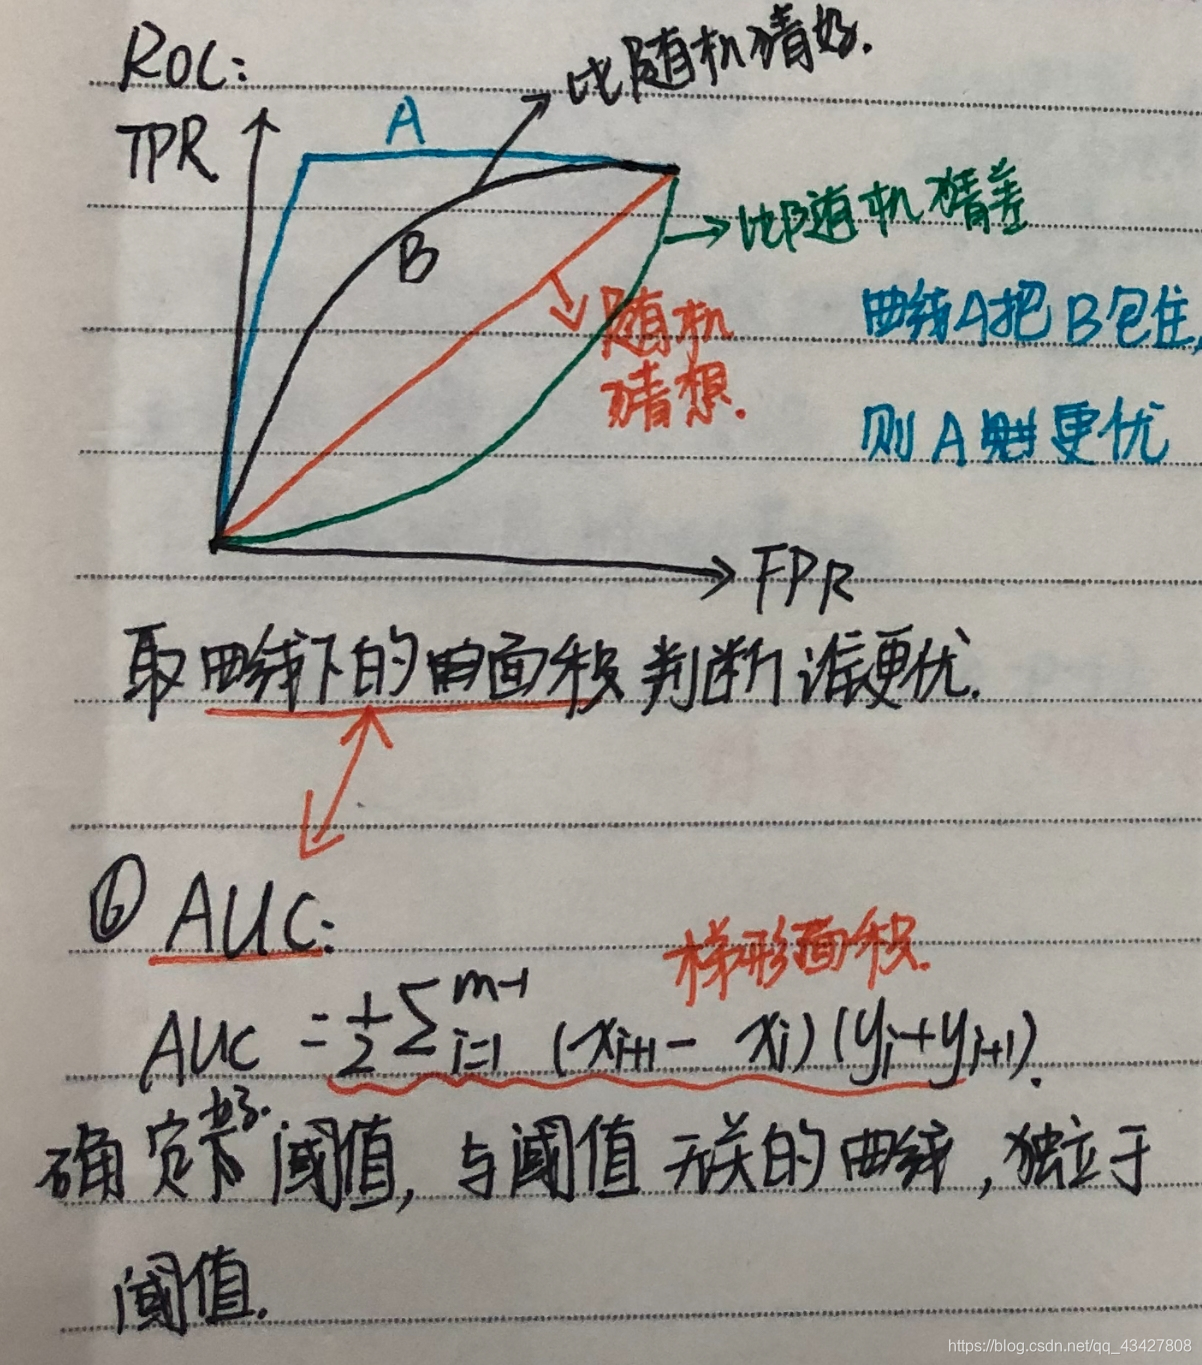 ROC:
比随机猜好.
TPR
A
B
比随机猜差
随机
猜想.
曲线A把B包住,
则A更优
FPR
取曲线下的面积判断谁更优.
⑥ AUC:
梯形面积.
AUC = 1/2 ∑_{i=1}^{m-1} (x_{i+1} - x_i)(y_i + y_{i+1}).
确定好阈值, 与阈值无关的曲线, 独立于
阈值.
https://blog.csdn.net/qq_43427808